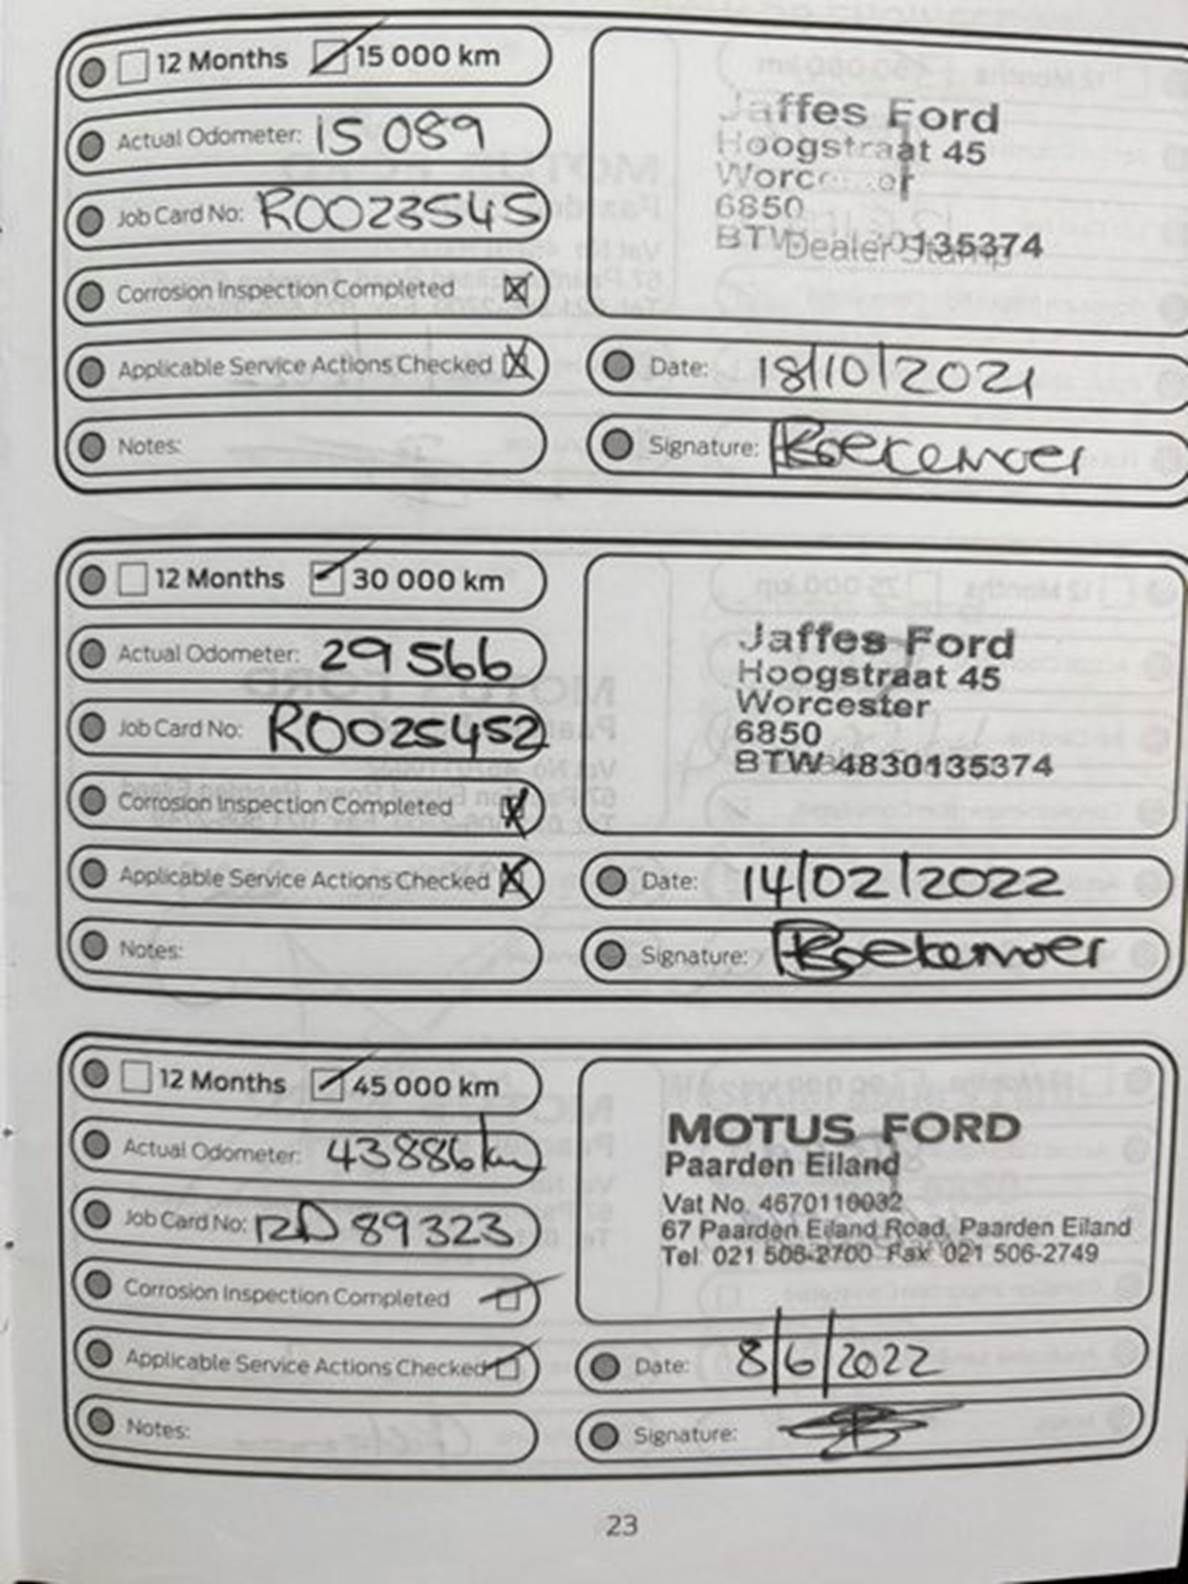 12 Months 15 000 km
Actual Odometer: 15 089
Job Card No: RO023545
Corrosion Inspection Completed
Applicable Service Actions Checked
Notes:
Jaffes Ford
Hoogstraat 45
Worcester
6850
BTW 4830135374
Dealer Stamp
Date: 18/10/2021
Signature: Koekemoer
12 Months 30 000 km
Actual Odometer: 29 566
Job Card No: RO025452
Corrosion Inspection Completed
Applicable Service Actions Checked
Notes:
Jaffes Ford
Hoogstraat 45
Worcester
6850
BTW 4830135374
Date: 14/02/2022
Signature: Koekemoer
12 Months 45 000 km
Actual Odometer: 43886km
Job Card No: RO 89323
Corrosion Inspection Completed
Applicable Service Actions Checked
Notes:
MOTUS FORD
Paarden Eiland
Vat No. 4670110032
67 Paarden Eiland Road, Paarden Eiland
Tel 021 506-2700 Fax 021 506-2749
Date: 8/6/2022
Signature:
23